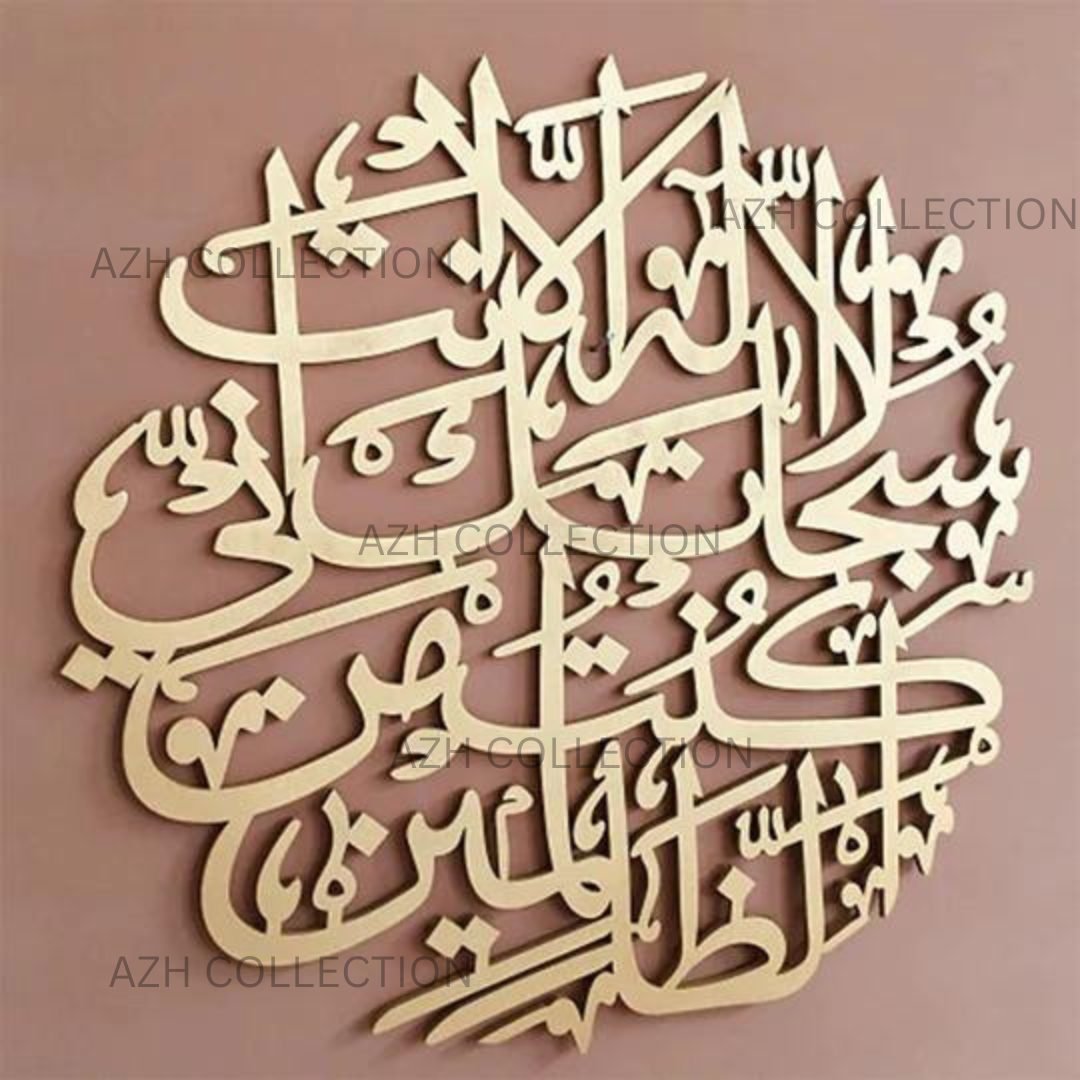 لَا إِلَهَ إِلَّا أَنْتَ
سُبْحَانَكَ إِنِّي
كُنْتُ مِنَ
الظَّالِمِينَ
AZH COLLECTION
AZH COLLECTION
AZH COLLECTION
AZH COLLECTION
AZH COLLECTION